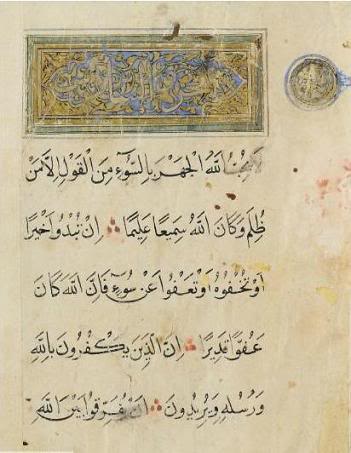 لَا يُحِبُّ اللَّهُ الْجَهْرَ بِالسُّوءِ مِنَ الْقَوْلِ إِلَّا مَنْ
ظُلِمَ وَكَانَ اللَّهُ سَمِيعًا عَلِيمًا إِنْ تُبْدُوا خَيْرًا
أَوْ تُخْفُوهُ أَوْ تَعْفُوا عَنْ سُوءٍ فَإِنَّ اللَّهَ كَانَ
عَفُوًّا قَدِيرًا إِنَّ الَّذِينَ يَكْفُرُونَ بِاللَّهِ
وَرُسُلِهِ وَيُرِيدُونَ أَنْ يُفَرِّقُوا بَيْنَ اللَّهِ